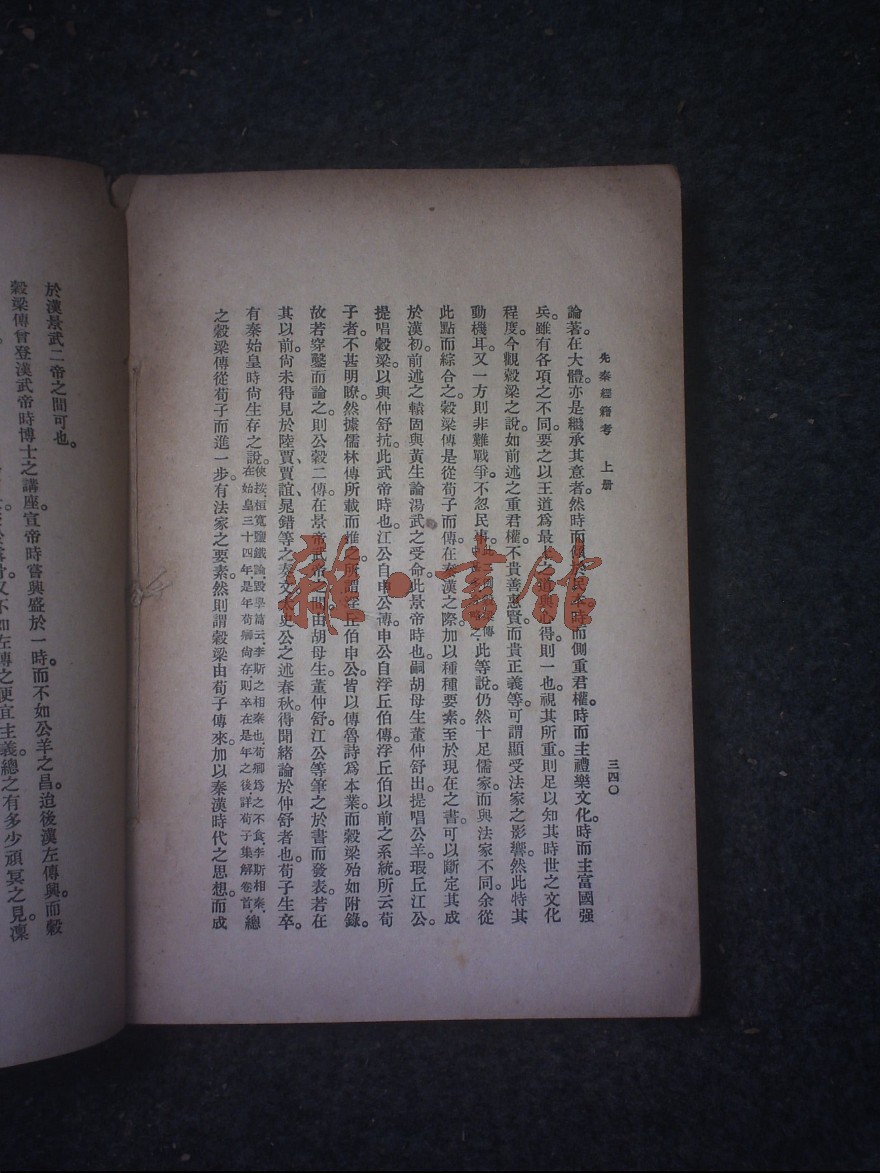 先秦經籍考 上册
三四〇
論著。在大體亦是繼承其意者。然時而民本。時而側重君權。時而主禮樂文化。時而主富國强
兵。雖有各項之不同。要之以王道爲最心得則一也。視其所重。則足以知其時世之文化
程度。今觀穀梁之說。如前述之重君權。不貴善惠賢。而貴正義等。可謂顯受法家之影響。然此特其
動機耳。又一方則非難戰爭。不忍民此等說仍然十足儒家。而與法家不同。余從
此點而綜合之。穀梁傳是從荀子而傳。在秦漢之際。加以種種要素。至於現在之書。可以斷定其成
於漢初。前述之轅固與黃生論湯武之受命。此景帝時也。嗣胡母生董仲舒出。提唱公羊。瑕丘江公。
提唱穀梁。以與仲舒抗。此武帝時也。江公自申公傳。申公自浮丘伯傳。浮丘伯以前之系統。所云荀
子者。不甚明瞭。然據儒林傳所載而推之。所謂浮丘伯申公。皆以傳魯詩爲本業。而穀梁殆如附錄。
故若穿鑿而論之。則公穀二傳。在景帝武帝間。由胡母生。董仲舒。江公等筆之於書而發表。若在
其以前。尙未得見於陸賈、賈誼、晁錯等之奏文。太史公之述春秋。得聞緒論於仲舒者也。荀子生卒。
有秦始皇時尙生存之說。俠按桓寬鹽鐵論、毀學篇云、李斯之相秦也、荀卿爲之不食、李斯相秦、在始皇三十四年、是年荀卿尙存、則卒在是年之後、詳荀子集解卷首、總
之穀梁傳從荀子而進一步。有法家之要素。然則謂穀梁由荀子傳來。加以秦漢時代之思想。而成
於漢景武二帝之間可也。
穀梁傳曾登漢武帝時博士之講座。宣帝時嘗興盛於一時。而不如公羊之昌。迨後漢左傳興。而穀
又不如左傳之便宜主義。總之有多少頑冥之見。凜
雜·書館